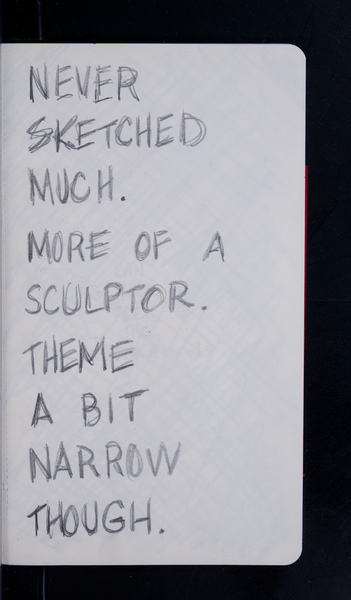 NEVER
SKETCHED
MUCH.
MORE OF A
SCULPTOR.
THEME
A BIT
NARROW
THOUGH.